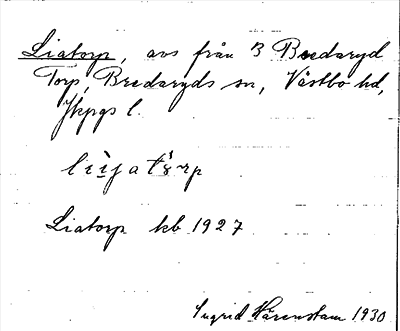 Liatorp, avs från 3 Bredaryd
Torp, Bredaryds sn, Västbo hd,
Jkpgs l.
liijatårp
Liatorp kb 1927
Ingrid Härenstam 1930